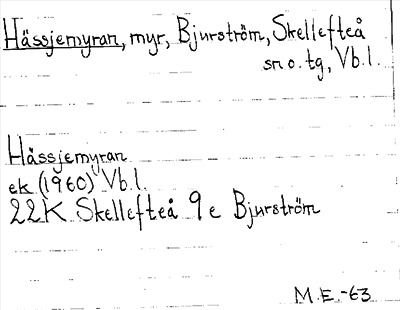 Hässjemyran, myr, Bjurström, Skellefteå
sn o. tg, Vb.l.
Håssjemyran
ek (1960) Vb.l.
22K Skellefteå 9e Bjurström
M.E.-63